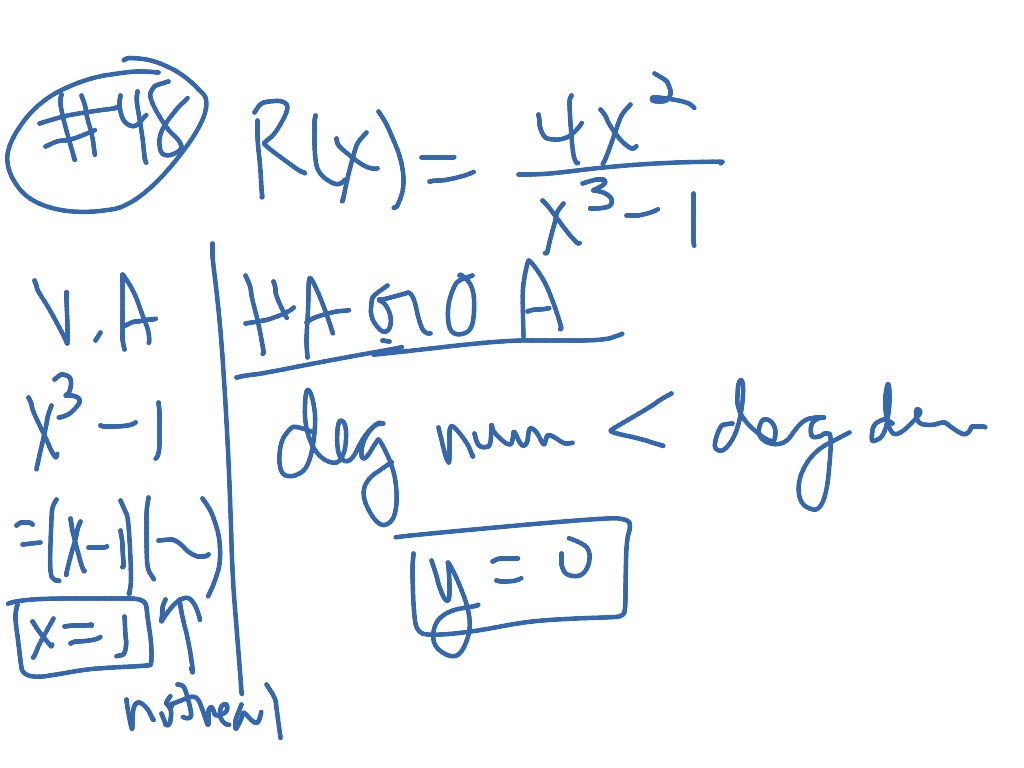 #48
R(x) = 4x² / x³ - 1
V.A
x³ - 1
= (x-1)(~)
x = 1
not real
HA or O A
deg num < deg den
y = 0